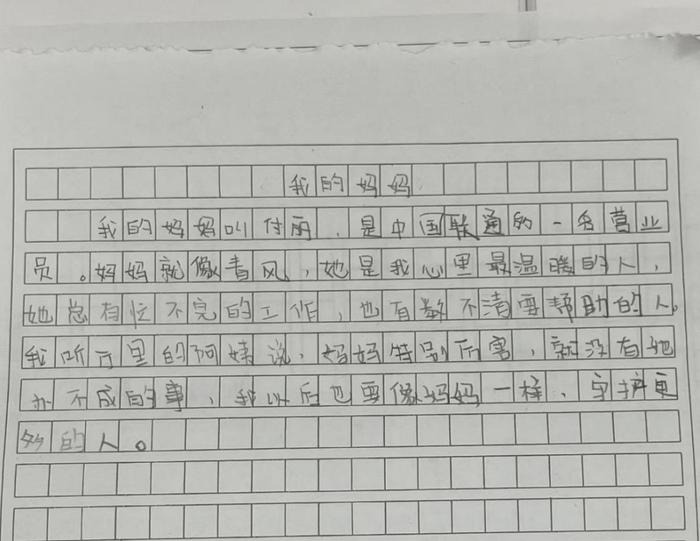 我的妈妈
我的妈妈叫付丽,是中国联通的一名营业
员。妈妈就像春风,她是我心里最温暖的人,
她总有忙不完的工作,也有数不清要帮助的人,
我听厅里的阿姨说,妈妈特别历害,就没有她
办不成的事,我以后也要像妈妈一样,守护更
多的人。